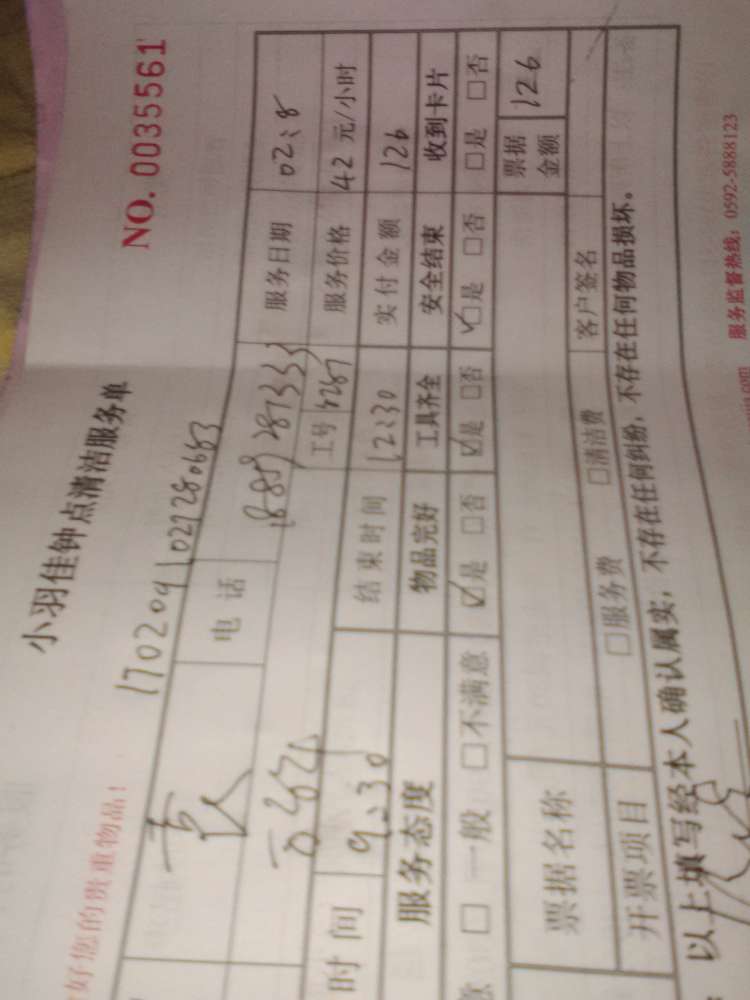 NO. 0035561
小羽佳钟点清洁服务单
好您的贵重物品!
电话
服务日期 02:8
工号 服务价格 42 元/小时
时间 9:30 结束时间 12:30 实付金额 126
服务态度 物品完好 工具齐全 安全结束 收到卡片
□一般 □不满意 ☑是 □否 ☑是 □否 ☑是 □否 □是 □否
票据名称 票据金额 126
开票项目 □服务费 □清洁费 客户签名
以上填写经本人确认属实，不存在任何纠纷，不存在任何物品损坏。
服务监督热线：0592-5888123